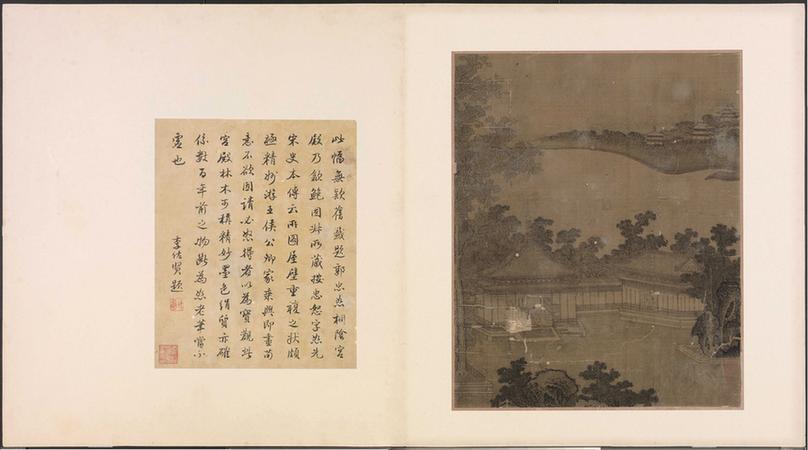 此幅無款舊籤題郭忠恕桐陰宮
殿乃歙鮑所藏按忠恕字恕先
宋史本傳云所圖屋壁重複之狀頗
極精妙游王侯公卿家乘興即畫苟
意不欲固請必怒得者以為寶觀此
宮殿林木精妙墨色絹質亦確
係數百年前之物斷為恕老筆當不
虛也
李佐賢題